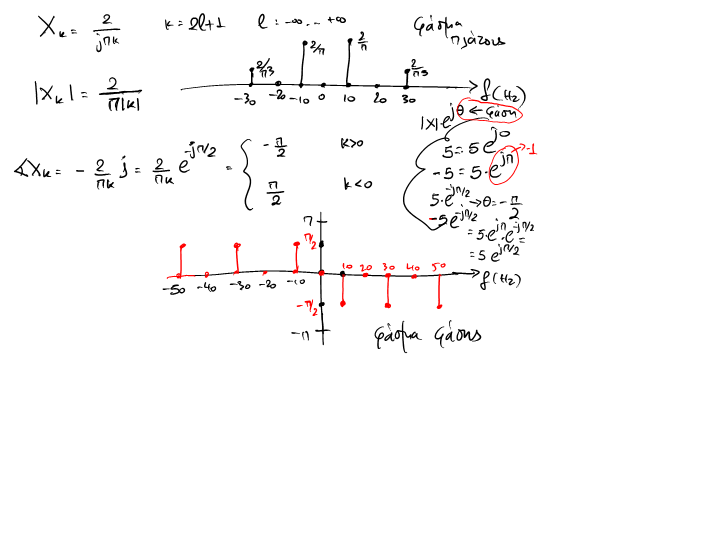 Xκ = 2/(jπκ)   κ = 2l+1   l : -∞ ... +∞   Φάσμα πλάτους
|Xκ| = 2/(π|κ|)
2/π3   2/π   2/π   2/π3
-30 -20 -10 0 10 20 30   f(Hz)
|X|·e^jθ ← φάση
∡Xκ = - 2/(πκ) j = 2/(πκ) e^-jπ/2 = { -π/2   κ>0
π/2   κ<0
5 = 5 e^j0
-5 = 5·e^jπ → -1
5·e^-jπ/2 → θ = -π/2
-5e^-jπ/2 = 5·e^jπ·e^-jπ/2 =
= 5 e^jπ/2
π
π/2
-50 -40 -30 -20 -10   10 20 30 40 50   f(Hz)
-π/2
-π   Φάσμα φάσης